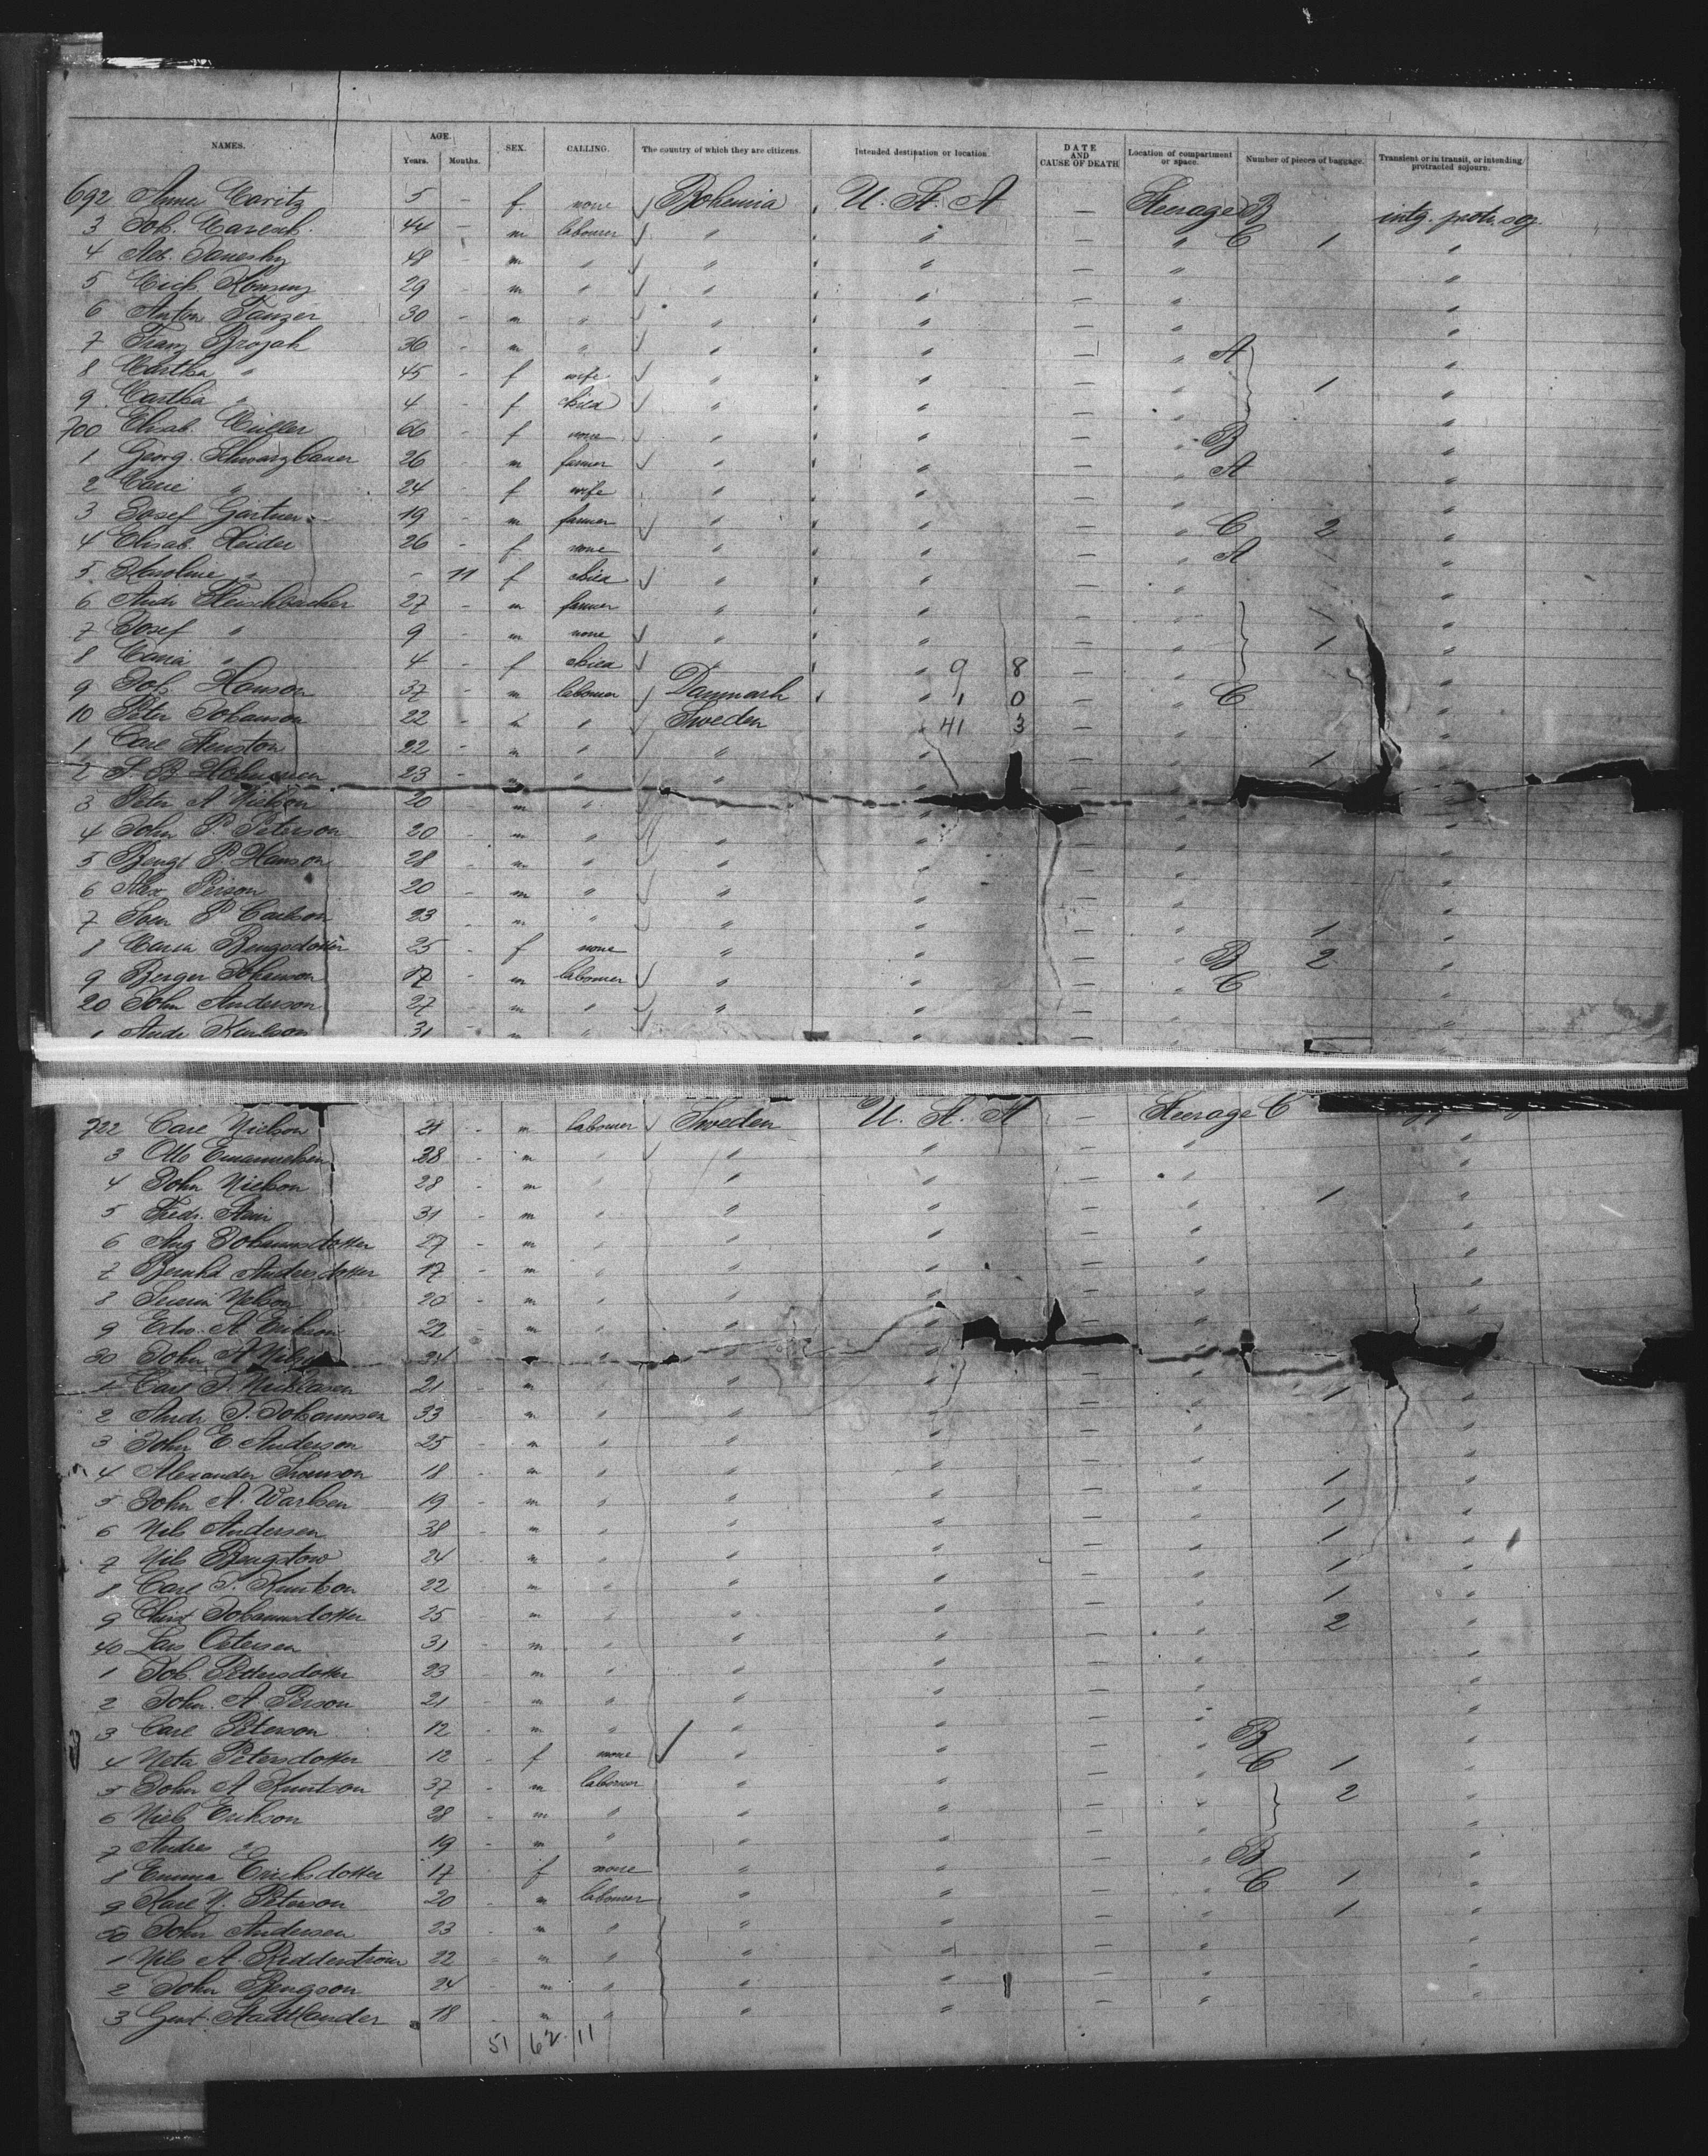 NAMES. AGE. Years. Months. SEX. CALLING. The country of which they are citizens. Intended destination or location. DATE AND CAUSE OF DEATH Location of compartment or space. Number of pieces of baggage. Transient or in transit, or intending protracted sojourn.
692 Anna 5 - f. none Bohemia U. St. A - Steerage B intg. protr. soj.
3 Joh. 44 - m labourer " " - " C 1 "
4 48 - m " " " - " "
5 29 - m " " " - " "
6 Anton Tanzer 30 - m " " " - " "
7 Franz Brozak 36 - m " " " - " A "
8 " 45 - f wife " " - " 1 "
9 " 4 - f child " " - " "
700 Elisab. Müller 66 - f none " " - " B "
1 Georg. Schwarzbauer 26 - m farmer " " - " A "
2 " 24 - f wife " " - " "
3 Josef Gärtner 19 - m farmer " " - " C 2 "
4 Elisab. Heider 26 - f none " " - " A "
5 Karoline " - 11 f child " " - " "
6 Andr Fleischhacker 27 - m farmer " " - " "
7 Josef " 9 - m none " " - " 1 "
8 Maria " 4 - f child " 9 8 - " "
9 Joh. Hanson 37 - m labourer Danmark " 1 0 - " C "
10 Peter Johanson 22 - " Sweden 41 3 - " "
1 Carl 22 - m " " " - " 1 "
2 23 - m " " "
3 Peter A Nielson 20 - m " " " - " "
4 John P. Peterson 20 - m " " " - " "
5 Bengt P. Hanson 28 - m " " " - " "
6 Alex Person 20 - m " " " - " "
7 P Carlson 23 - m " " " - " 1 "
8 Maria Bengsdotter 25 - f none " " - " B 2 "
9 Berger Johanson 17 - m labourer " " - " C "
20 John Anderson 27 - m " " " - " "
1 Andr Karlson 31 - m "
722 Carl Nielson 21 - m labourer Sweden U. St. A - Steerage C
3 Otto Emanuelsen 28 - m " " " - " "
4 John Nielson 28 - m " " " - " 1 "
5 Fredr. 31 - m " " " - " "
6 Aug Johannsdotter 27 - m " " " - " "
7 Andersdotter 17 - m " " " - " "
8 Nelson 20 - m " " " - " "
9 Edw. A. Erikson 22 - m " " " - "
30 John A 24 - " " " "
1 Carl 21 - m " " " - " 1 "
2 Andr J. Johannsen 33 - m " " " - " "
3 John E Anderson 25 - m " " " - " "
4 Alexander 18 - m " " " - " 1 "
5 John A. 19 - m " " " - " 1 "
6 Nils Andersen 38 - m " " " - " 1 "
7 Nils 24 - m " " " - " 1 "
8 Carl 22 - m " " " - " 1 "
9 Christ Johannsdotter 25 - m " " " - " 2 "
40 Lars 31 - m " " " - " "
1 Joh. Pettersdotter 23 - m " " " - " "
2 John. A. Person 21 - m " " " - " "
3 Carl Peterson 12 - m " " " - " B "
4 Neta Petersdotter 12 - f none " " - " C 1 "
5 John A Knutson 37 - m labourer " " - " 2 "
6 Niels Erikson 28 - m " " " - " "
7 Andres " 19 - m " " " - " B "
8 Emma Ericksdotter 17 - f none " " - " C 1 "
9 Karl N. Peterson 20 - m labourer " " - " 1 "
50 John Andersen 23 - m " " " - " "
1 Nils A. Ridderström 22 - m " " " - " "
2 John Bengson 24 - m " " " - " "
3 Gust. 18 - m " " " - " "
51 62 11